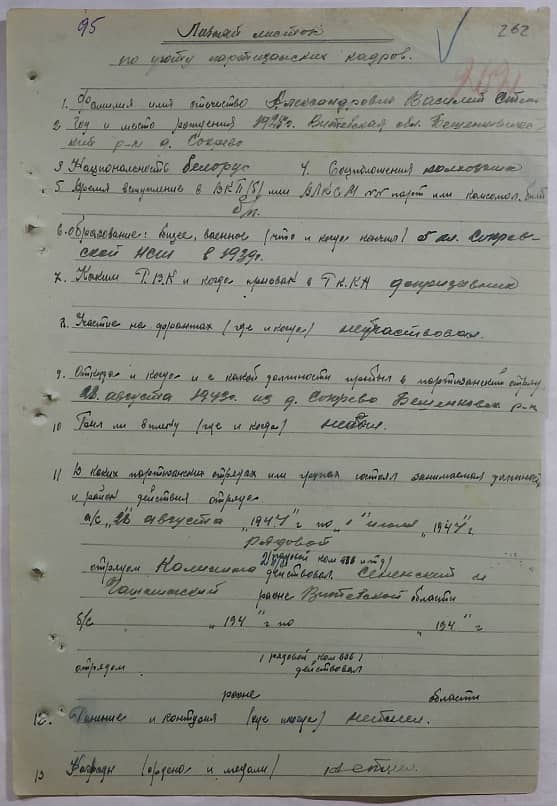 95
262
Личный листок
по учёту партизанских кадров.
1. Фамилия имя отчество Александрович Василий Степ
2. Год и место рождения 1925г. Витебская обл. Бешенковичс-
кий р-н д. Сокрово
3. Национальность белорус 4. Соцположения колхозник
5. Время вступление в ВКП(б) или ВЛКСМ № парт или комсомол. билет
б/п.
6. Образование: общее, военное (что и когда кончил) 5 кл. Сокров-
ской НСШ в 1939г.
7. Каким Р.В.К и когда призван в РККА допризывник
8. Участие на фронтах (где и когда) неучаствовал.
9. Откуда и когда и с какой должности прибыл в партизанский отряд
22 августа 1943г. из д. Сокрово Бешенкович р-н
10 Был ли в плену (где и когда) небыл.
11 В каких партизанских отрядах или группах состоял занимаемая должность
и район действия отряда.
а/с "22" августа "194 "г по " " июля "1944"г.
рядовой
отрядом Калинина действовал Сененский и
Чашникский районе Витебской области
б/с "194 "г по "194 "г
(рядовой ком взв)
отрядом действовал
районе области
12. Ранение и контузия (где и когда) неимел.
13 Награды (ордена и медали) неимел.